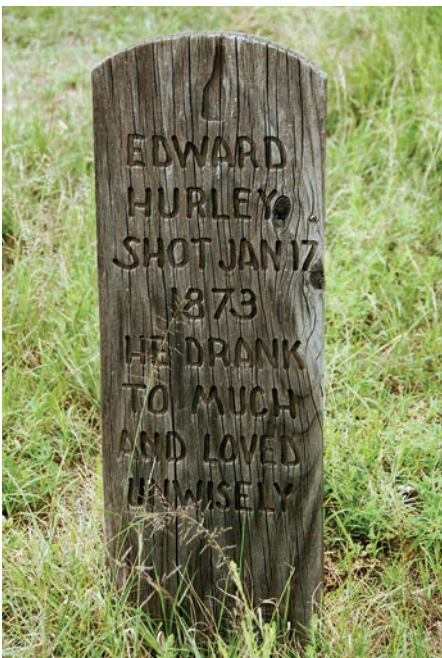 EDWARD
HURLEY
SHOT JAN 17
1873
HE DRANK
TO MUCH
AND LOVED
UNWISELY